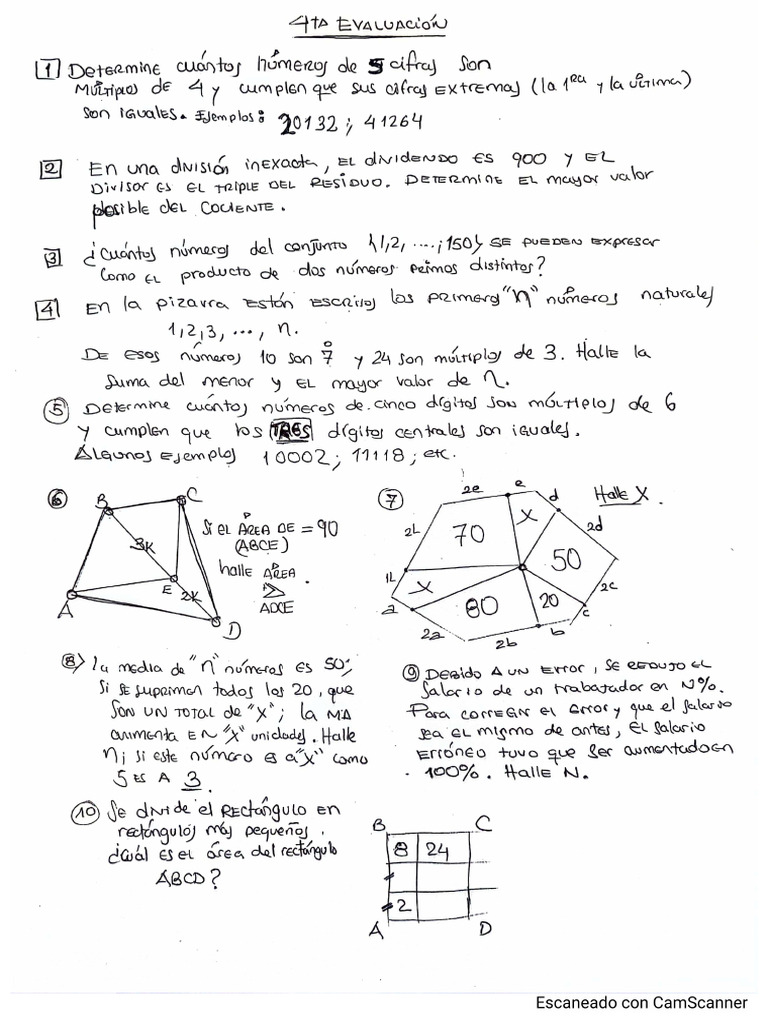 4TA EVALUACIÓN
1 DETERMINE cuántos números de 5 cifras son
MÚLTIPLOS DE 4 y cumplen que sus cifras EXTREMAS (la 1RA y la última)
son iguales. Ejemplos: 20132; 41264
2 En una división inexacta, EL dividendo es 900 y EL
Divisor es EL TRIPLE DEL RESIDUO. DETERMINE EL mayor valor
posible del COCIENTE.
3 ¿Cuántos números del conjunto {1,2, ....; 150} SE PUEDEN EXPRESAR
como el producto de dos números primos distintos?
4 En la pizarra ESTÁN ESCRITOS los primeros "n" números naturales
1,2,3, ..., n.
De esos números 10 son 7° y 24 son múltiplos de 3. Halle la
suma del menor y EL mayor valor de n.
5 Determine cuántos números de cinco dígitos son múltiplos de 6
y cumplen que los TRES dígitos centrales son iguales.
Algunos ejemplos 10002; 11118; etc.
6
B
C
3K
E
2K
A
D
Si el ÁREA DE = 90
(ABCE)
halle ÁREA
ADCE
7
Halle X.
2e
e
d
2L
70
X
2d
50
1L
X
2c
a
80
20
c
2a
2b
b
8) la media de "n" números es 50;
Si se suprimen todos los 20, que
son UN TOTAL de "X"; la MA
aumenta EN "X" unidades. Halle
n; si este número es a "X" como
5 ES A 3.
9 DEBIDO A UN ERROR, SE REDUJO EL
Salario de un trabajador en N%.
Para corregir el error y que el salario
sea EL mismo de antes, EL salario
ERRÓNEO tuvo que ser aumentado en
100%. Halle N.
10 Se divide el RECTÁNGULO EN
rectángulos más pequeños,
¿Cuál ES el área del rectángulo
ABCD?
B
C
8
24
2
A
D
Escaneado con CamScanner